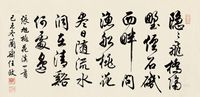 隐隐飞桥隔
野烟石矶
西畔问
渔船桃花
尽日随流水
洞在清溪
何处边
张旭桃花溪一首
己丑冬月任政